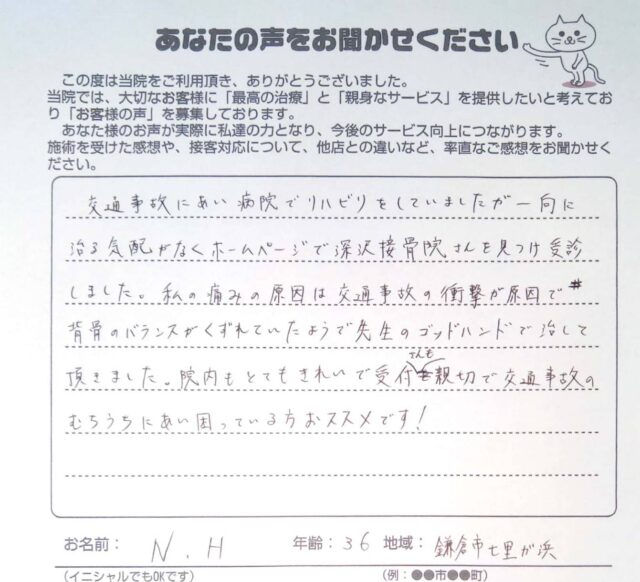 あなたの声をお聞かせください
この度は当院をご利用頂き、ありがとうございました。
当院では、大切なお客様に「最高の治療」と「親身なサービス」を提供したいと考えてお
り「お客様の声」を募集しております。
あなた様のお声が実際に私達の力となり、今後のサービス向上につながります。
施術を受けた感想や、接客対応について、他店との違いなど、率直なご感想をお聞かせく
ださい。
交通事故にあい病院でリハビリをしていましたが一向に
治る気配がなくホームページで深沢接骨院さんを見つけ受診
しました。私の痛みの原因は交通事故の衝撃が原因で
背骨のバランスがくずれていたようで先生のゴッドハンドで治して
頂きました。院内もとてもきれいで受付さんも親切で交通事故の
むちうちにあい困っている方おススメです!
お名前: N.H 年齢:36 地域:鎌倉市七里が浜
(イニシャルでもOKです) (例:●●市●●町)